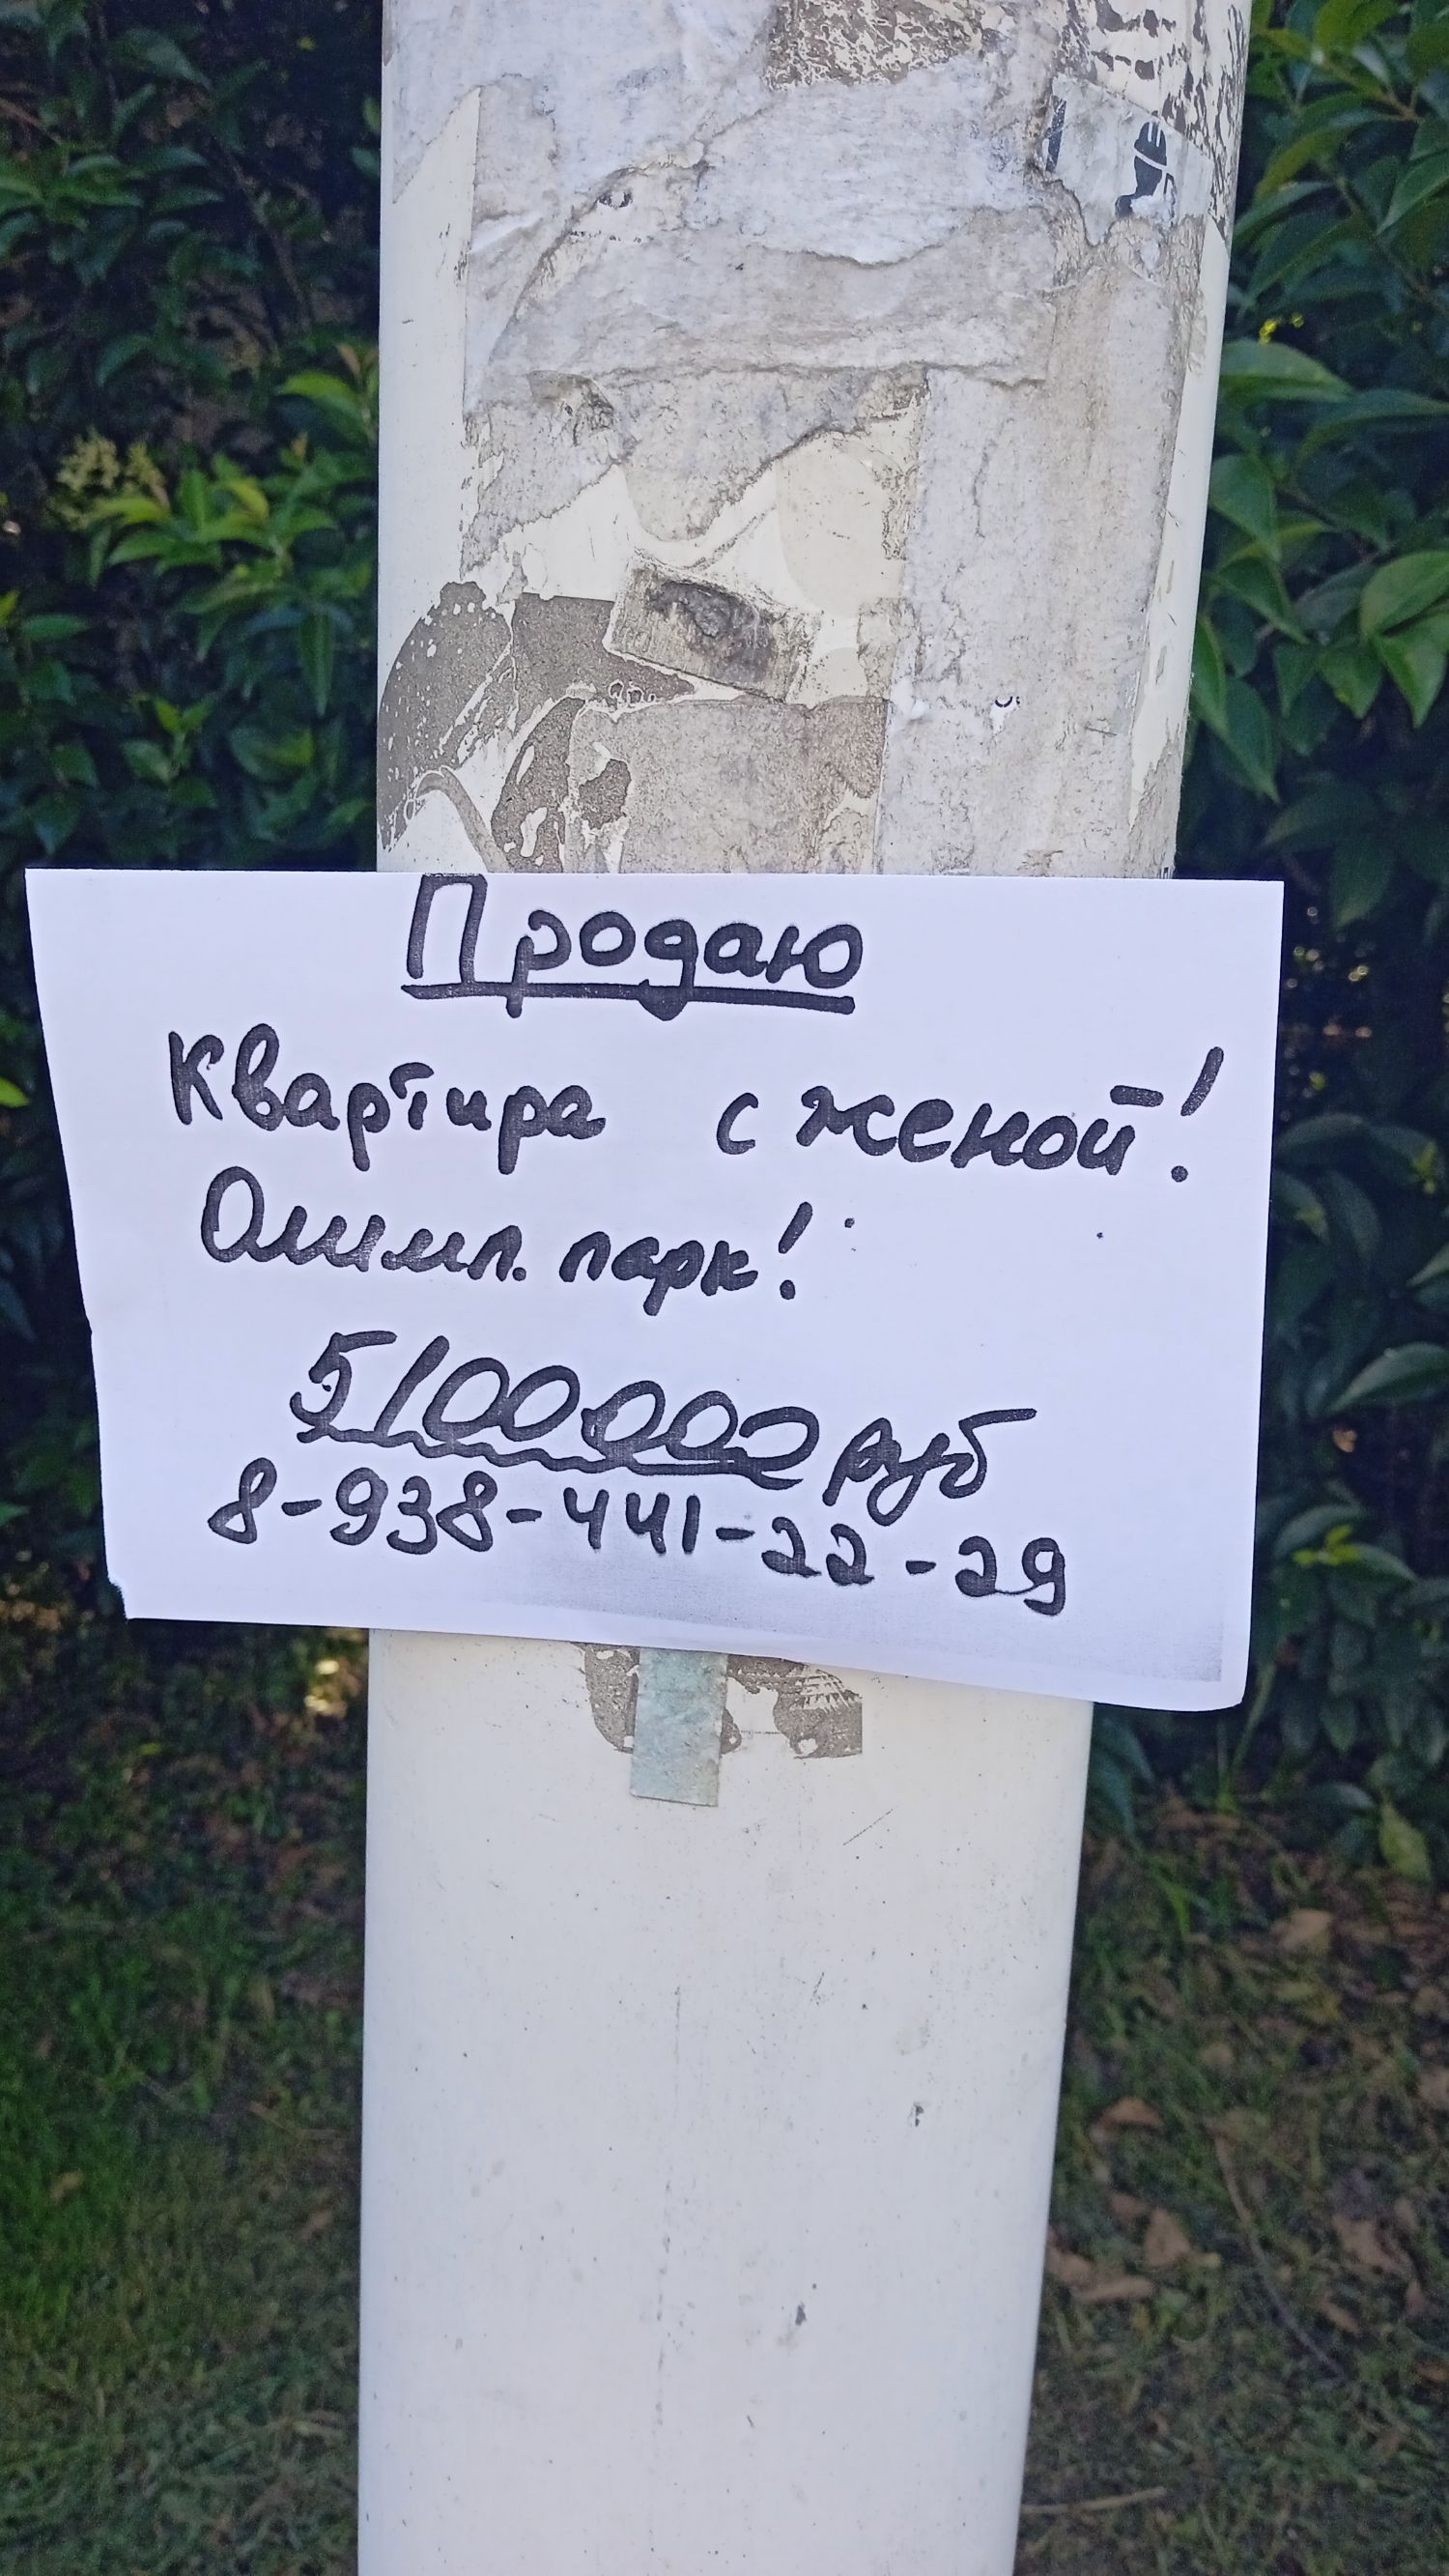 Продаю
Квартира с женой!
Олимп. парк!
5100000 руб
8-938-441-22-29